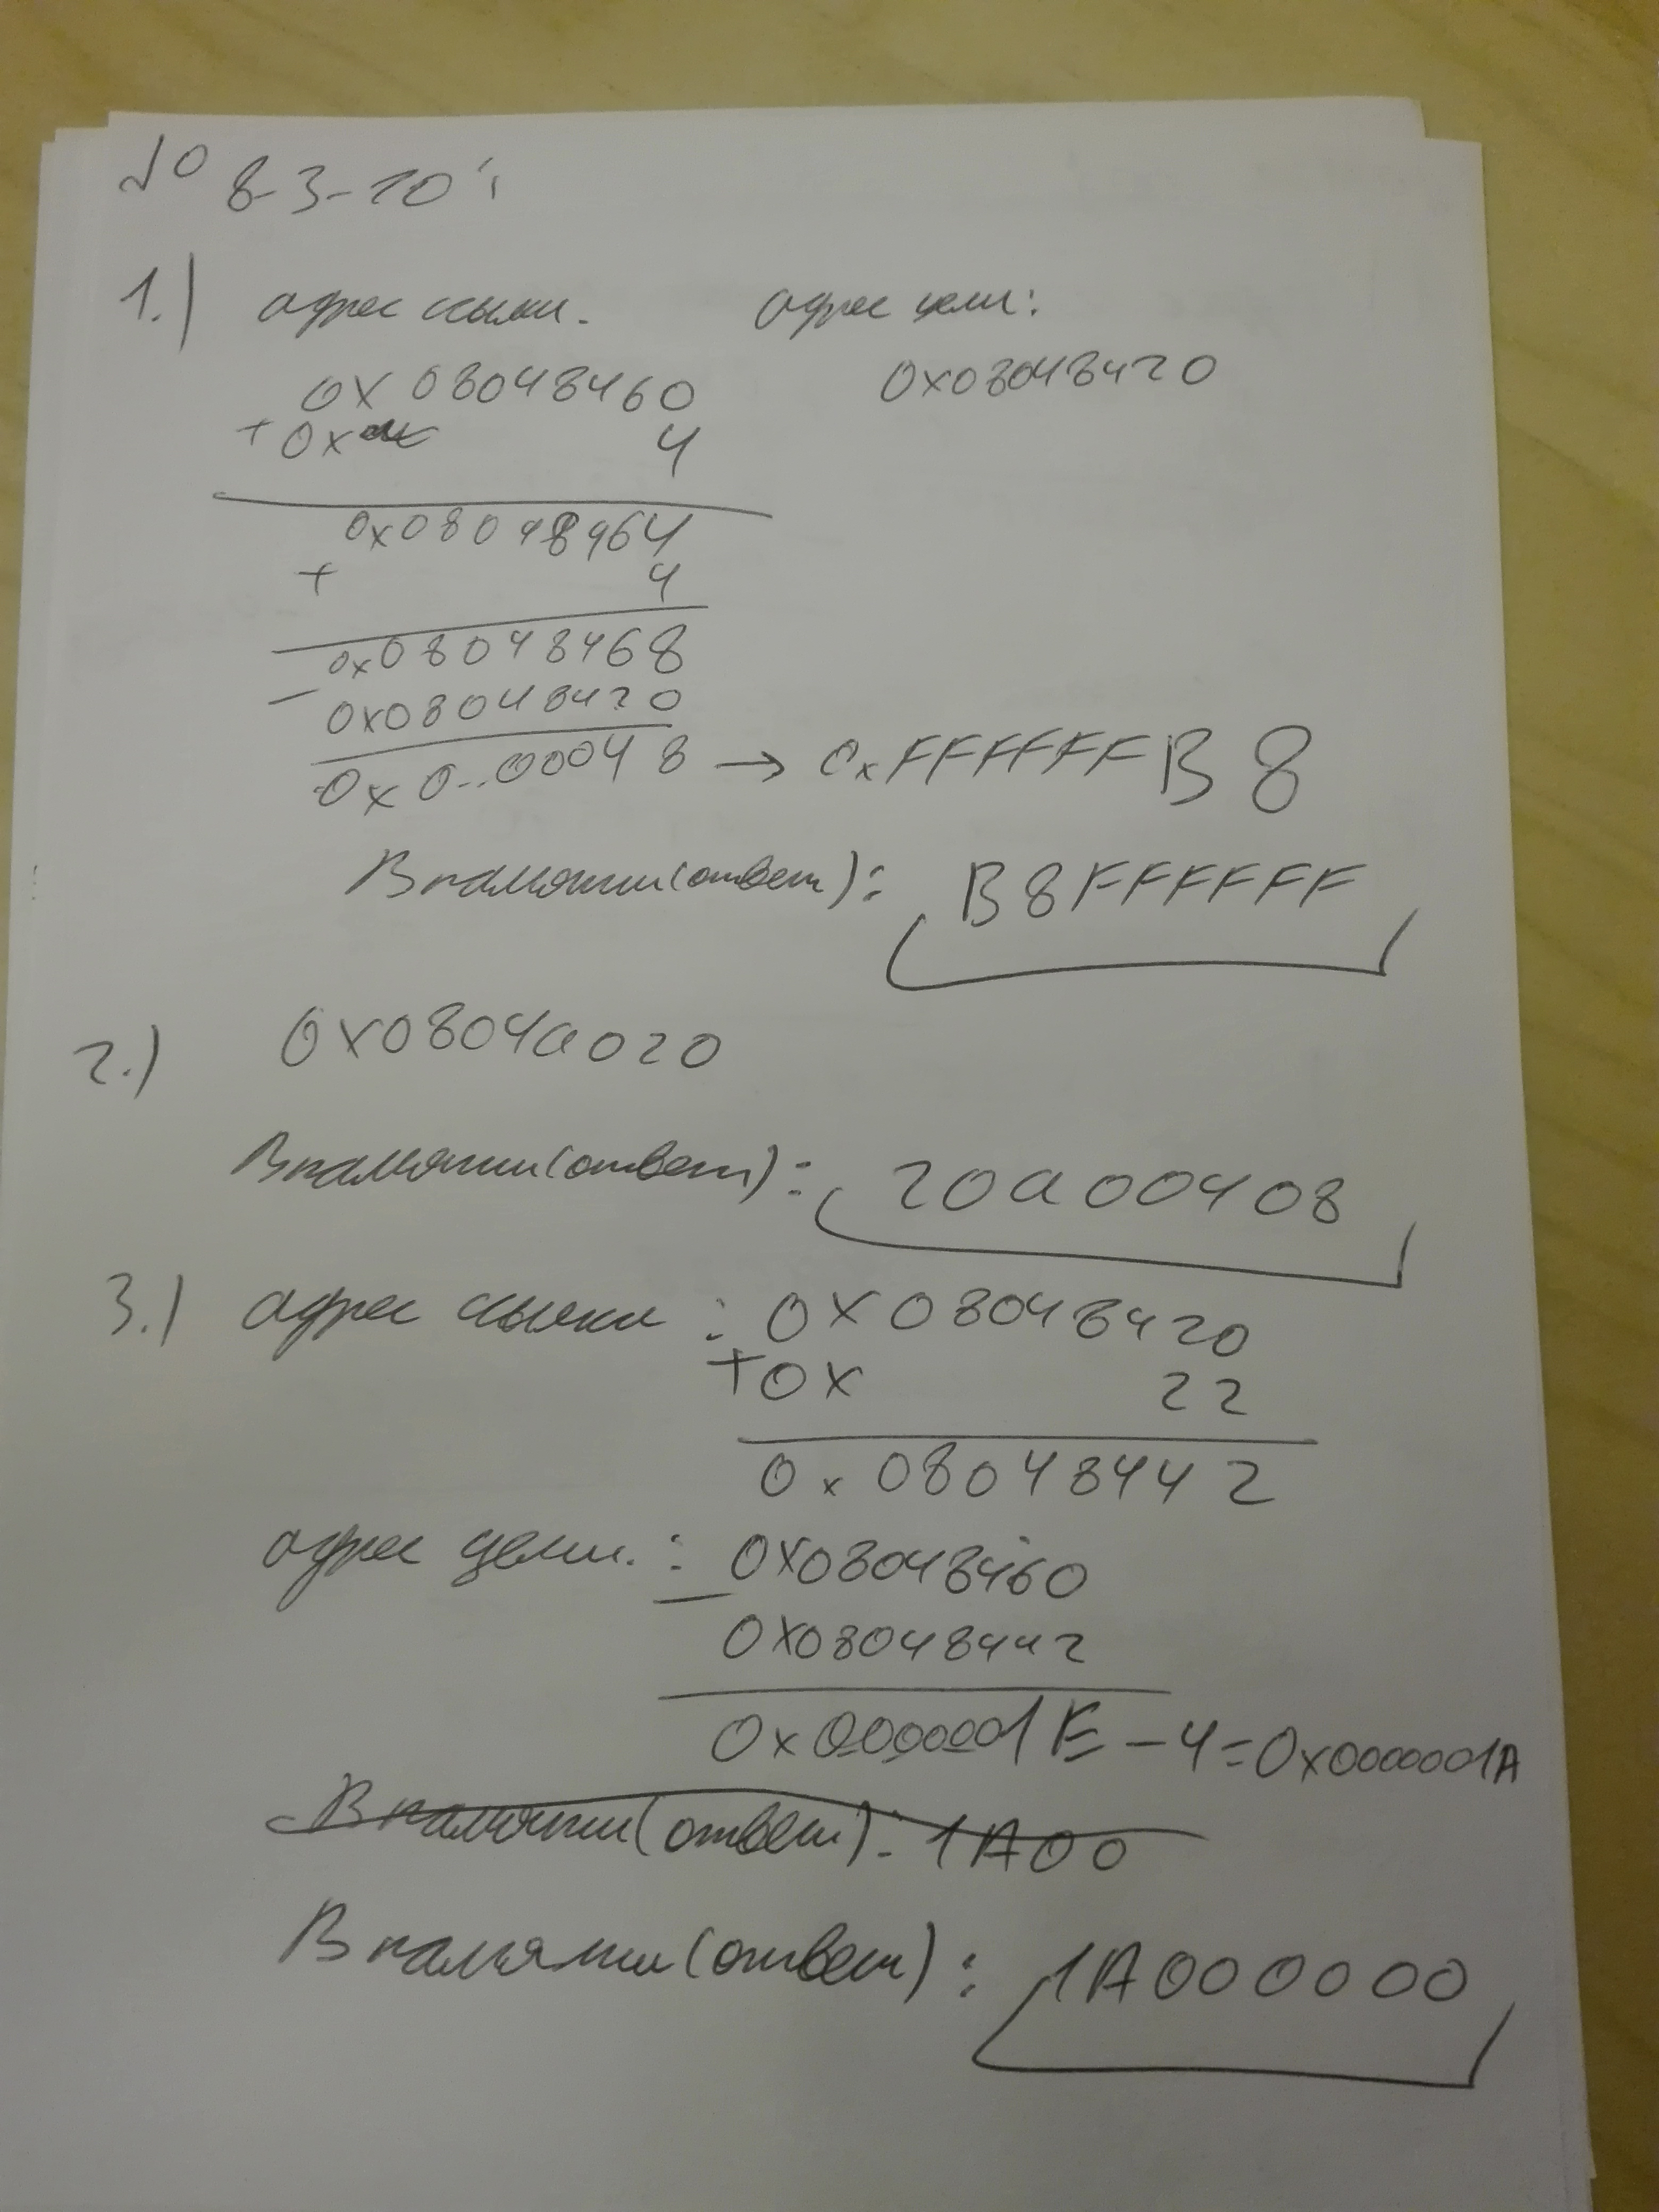 № 8-3-20:
1.) адрес ссылки. адрес цели:
0x08048460 0x08048420
+ 0x 4
0x08048464
+ 4
0x08048468
- 0x08048420
0x0..00048 → 0xFFFFFFB8
В памяти(ответ): B8FFFFFF
2.) 0x0804a020
В памяти(ответ): 20a00408
3.) адрес ссылки : 0x08048420
+0x 22
0x08048442
адрес цели. : 0x08048460
- 0x08048442
0x0000001E - 4 = 0x0000001A
В памяти(ответ): 1A00
В памяти(ответ): 1A000000